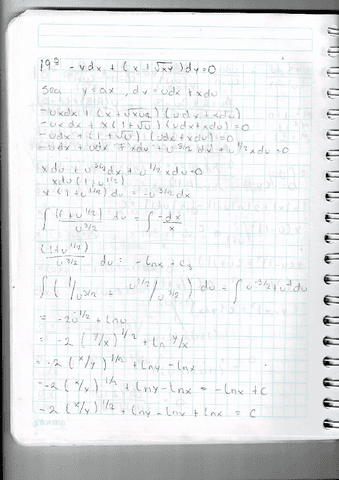 19² -ydx + (x + √xy)dy = 0
Sea y = ux, dy = udx + xdu
-uxdx + (x + √xux)(udx + xdu)
-uxdx + x(1+√u)(udx+xdu)=0
-udx + (1+√u)(udx+xdu)=0
-udx + udx + xdu + u^3/2 dx + u^1/2 xdu = 0
xdu + u^3/2 dx + u^1/2 xdu = 0
xdu(1+u^1/2)
x(1+u^1/2)du = -u^3/2 dx
∫ (1+u^1/2)/u^3/2 du = ∫ -dx/x
(1+u^1/2)/u^3/2 du = -lnx + c
∫ (1/u^3/2 + u^1/2/u^3/2) du = ∫ u^-3/2 + u^-1 du
= -2u^-1/2 + lnu
= -2 (y/x)^1/2 + ln y/x
= -2 (x/y)^1/2 + lny - lnx
= -2 (x/y)^1/2 + lny - lnx = -lnx + C
-2 (x/y)^1/2 + lny - lnx + lnx = C